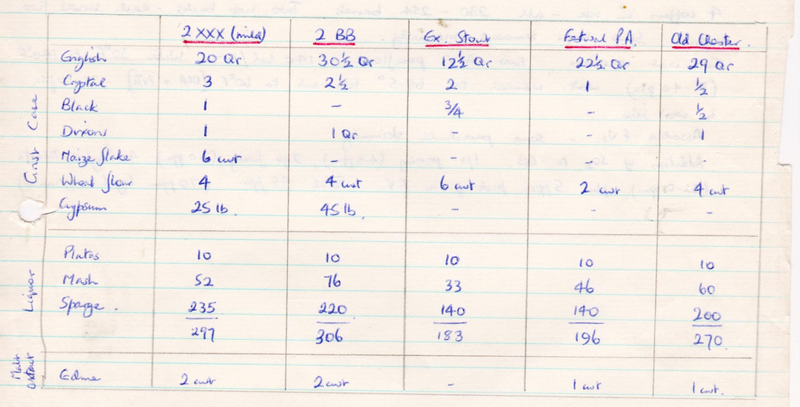 2 XXX (mild) 2 BB Ex. Stout Festival P.A. Old Chester.
Grist Case
English 20 Qr 30½ Qr 12½ Qr 22½ Qr 29 Qr
Crystal 3 2½ 2 1 ½
Black 1 - ¾ - ½
Dixons 1 1 Qr - - 1
Maize flake 6 cwt - - - -
Wheat flour 4 4 cwt 6 cwt 2 cwt 4 cwt
Gypsum 25 lb. 45 lb. - - -
Liquor
Plates 10 10 10 10 10
Mash 52 76 33 46 60
Sparge. 235 220 140 140 200
297 306 183 196 270
Malt Extract
Edme 2 cwt 2 cwt - 1 cwt 1 cwt.